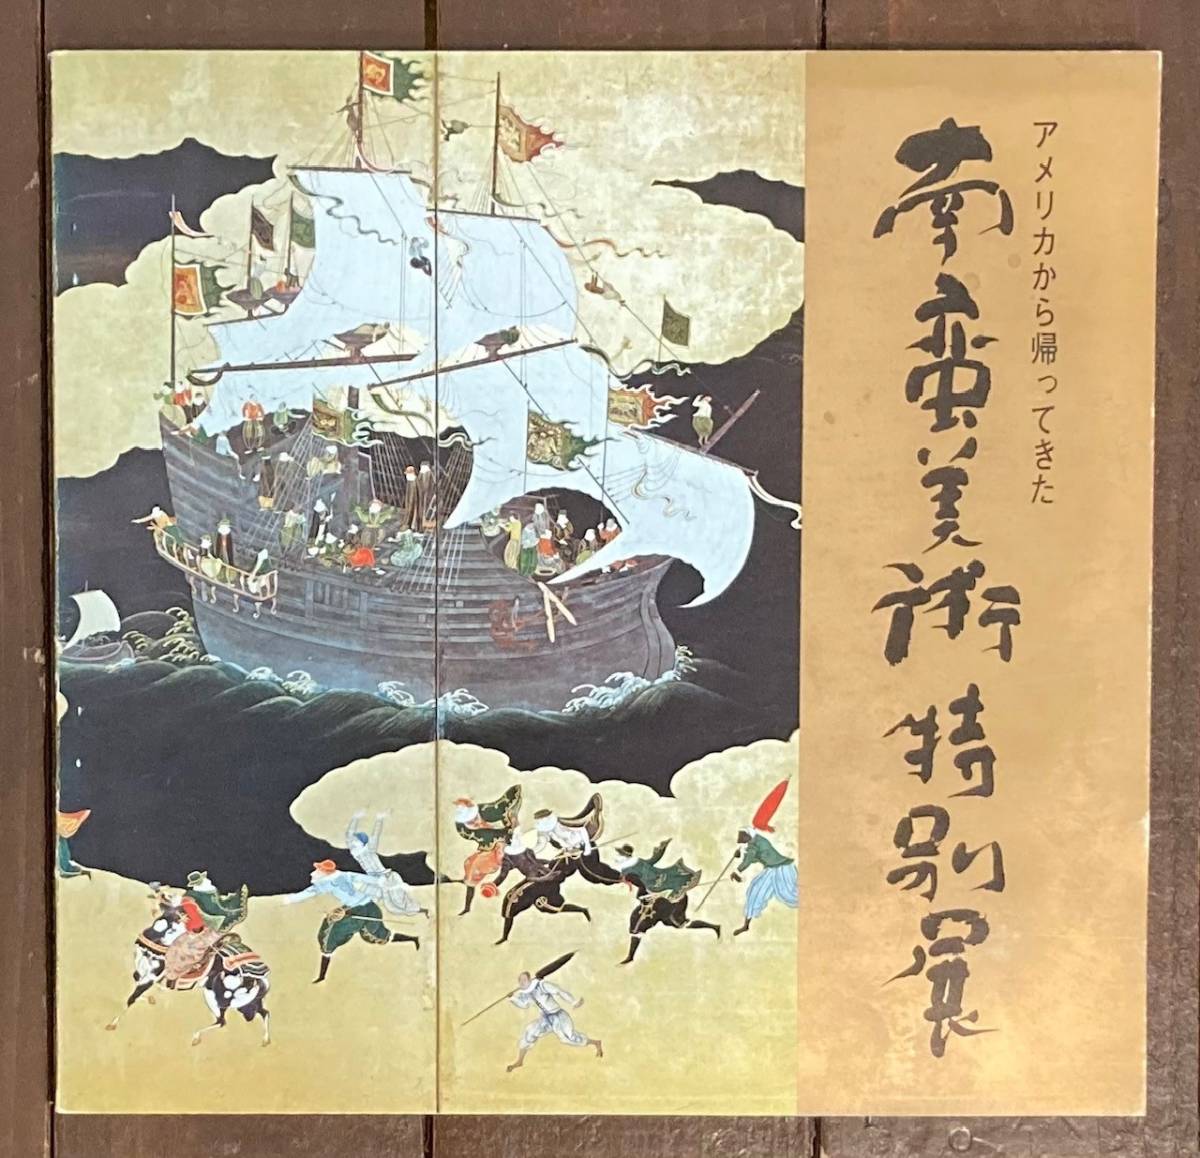 アメリカから帰ってきた
南蛮美術特別展